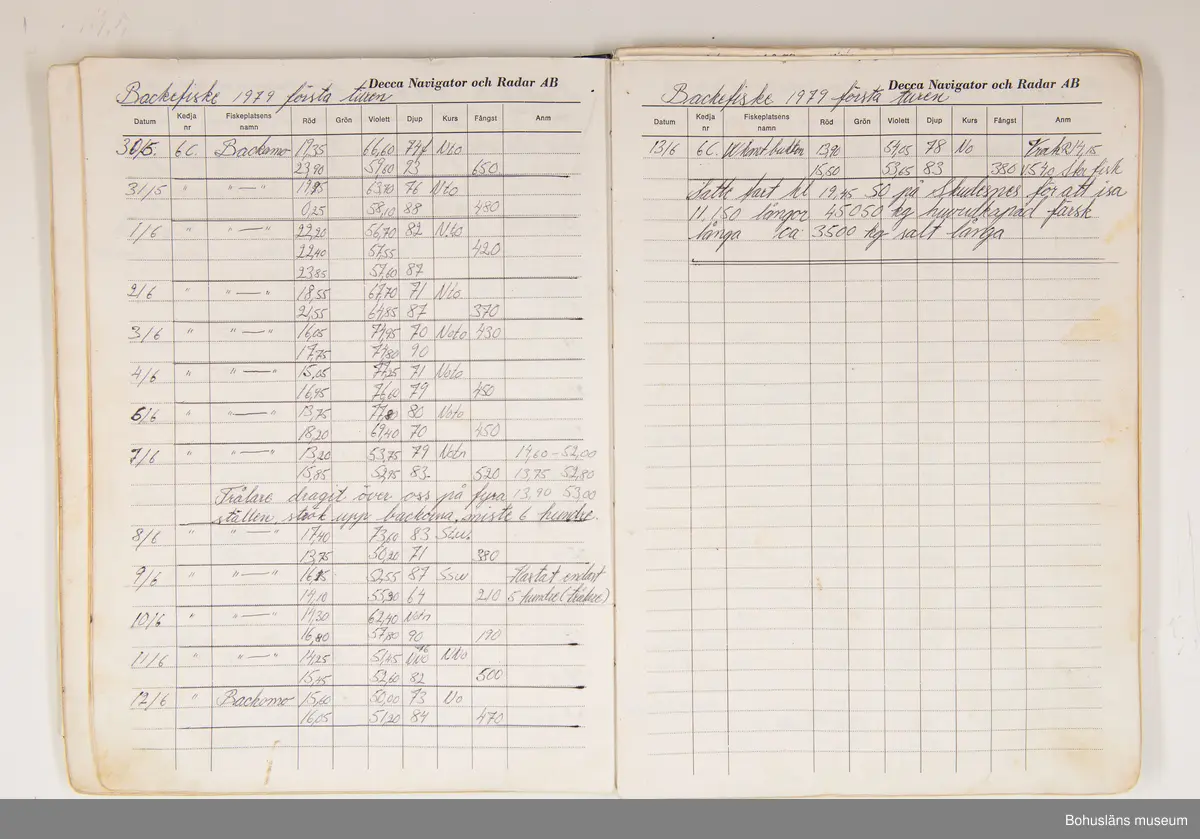 Decca Navigator och Radar AB
Backefiske 1979 första turen
Datum Kedja nr Fiskeplatsens namn Röd Grön Violett Djup Kurs Fångst Anm
30/5. 6C. Backomo 19,35 66,60 74 Nto
23,90 59,60 93 650
31/5 " "—" 63,70 76 Nto
0,25 58,10 88 480
1/6 " "—" 22,20 56,70 82 Nto
22,40 57,55 420
23,85 57,60 87
2/6 " "—" 18,55 67,70 71 Nto
21,55 64,85 87 370
3/6 " "—" 16,05 74,95 70 Noto 430
17,75 90
4/6 " "—" 15,05 77,25 71 Noto
16,95 76,60 79 450
5/6 " "—" 13,75 80 Noto
18,20 69,40 70 450
7/6 " "—" 13,20 53,75 79 Notn 14,60 – 52,00
15,85 52,95 83 520 13,75 52,80
Trålare dragit över oss på fyra 13,90 53,00
ställen, stök upp backorna, miste 6 hundre.
8/6 " "—" 17,40 73,60 83
13,75 50,20 71 380
9/6 " "—" 52,55 87 SSW endast
14,10 64 210 5 hundre
10/6 " "—" 14,30 62,40 Notn
16,80 57,80 90 190
11/6 " "—" 14,25 51,45 NNo
15,45 52,60 82 500
12/6 " Backomo 15,60 50,00 73 No
16,05 51,20 84 470
Decca Navigator och Radar AB
Backefiske 1979 första turen
Datum Kedja nr Fiskeplatsens namn Röd Grön Violett Djup Kurs Fångst Anm
13/6 6C. 13,90 78 No
15,50 53,65 83 380 fisk
Satte fart kl 19,45 50 på Skudesnes för att isa
11.150 långor 45050 kg huvudkapad färsk
långa ca: 3500 kg salt långa
Bohusläns museum